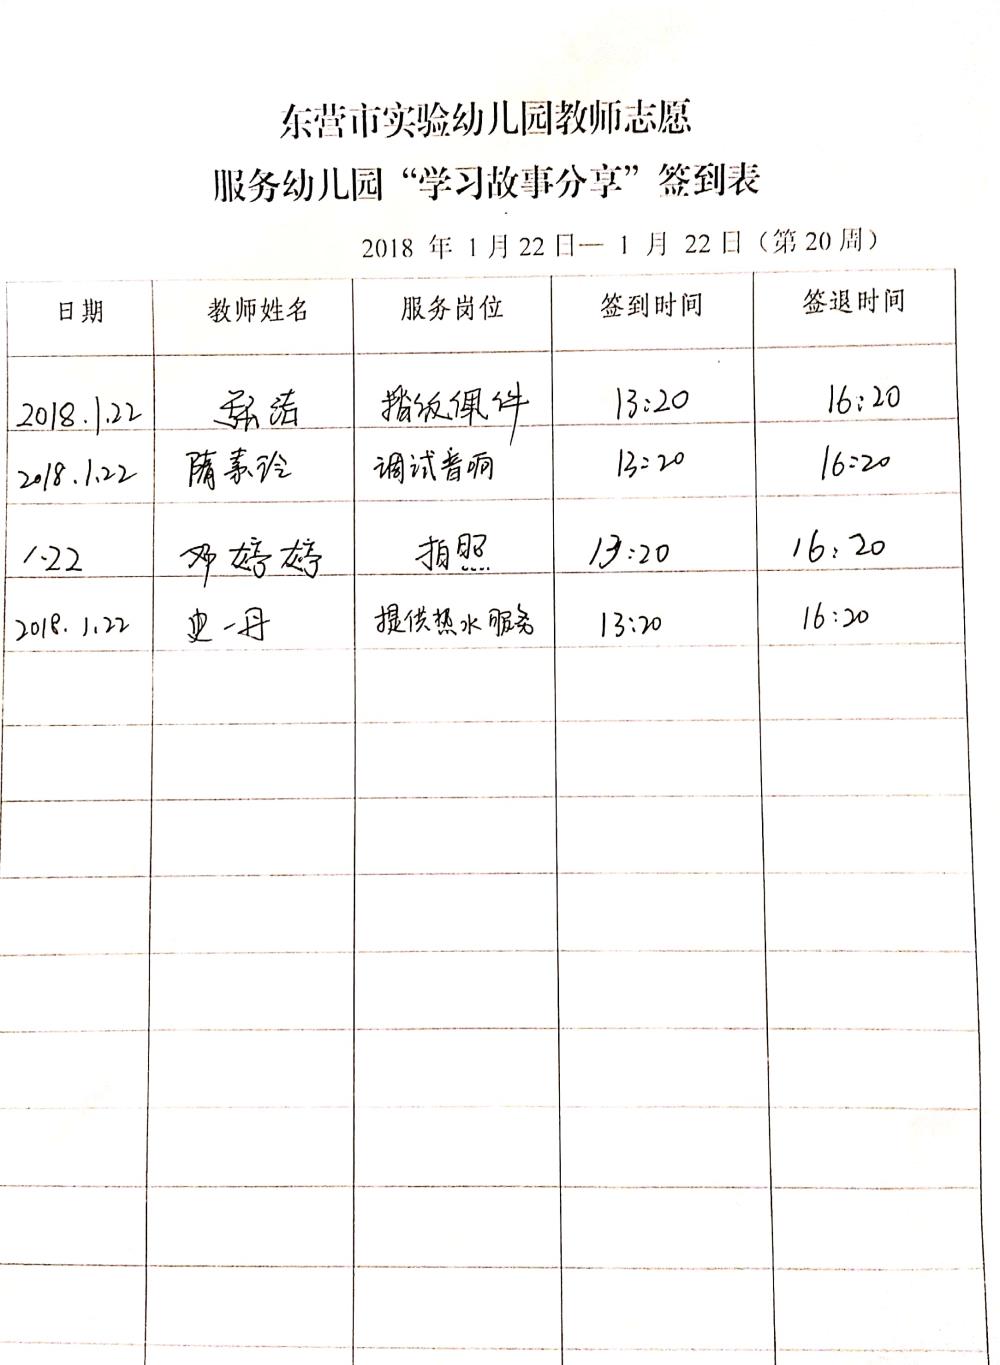 东营市实验幼儿园教师志愿
服务幼儿园“学习故事分享”签到表
2018 年 1 月 22 日— 1 月 22 日（第 20 周）
日期 教师姓名 服务岗位 签到时间 签退时间
2018.1.22 洁 佩件 13:20 16:20
2018.1.22 隋素玲 调试音响 13:20 16:20
1.22 邓婷婷 拍照 13:20 16:20
2018.1.22 史一丹 提供热水服务 13:20 16:20